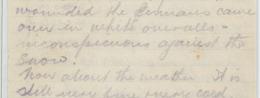 wounded the Germans came
over in white overalls -
inconspicuous against the
snow.
Now about the weather it is
still very fine very cold